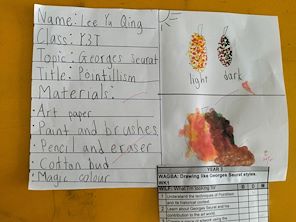 Name: Lee Yu Qing
Class: Y3T
Topic: Georges seurat
Title: Pointillism
Materials:
• Art paper
• Paint and brushes
• Pencil and eraser
• Cotton bud
• Magic colour
light
dark
YEAR 3
WAGBA: Drawing like Georges Seurat styles.
WK1
WILF: What I'm looking for
1 Understand the techniques of Pointillism
and its historical context.
2 Learn about Georges Seurat and his
contribution to the art world.